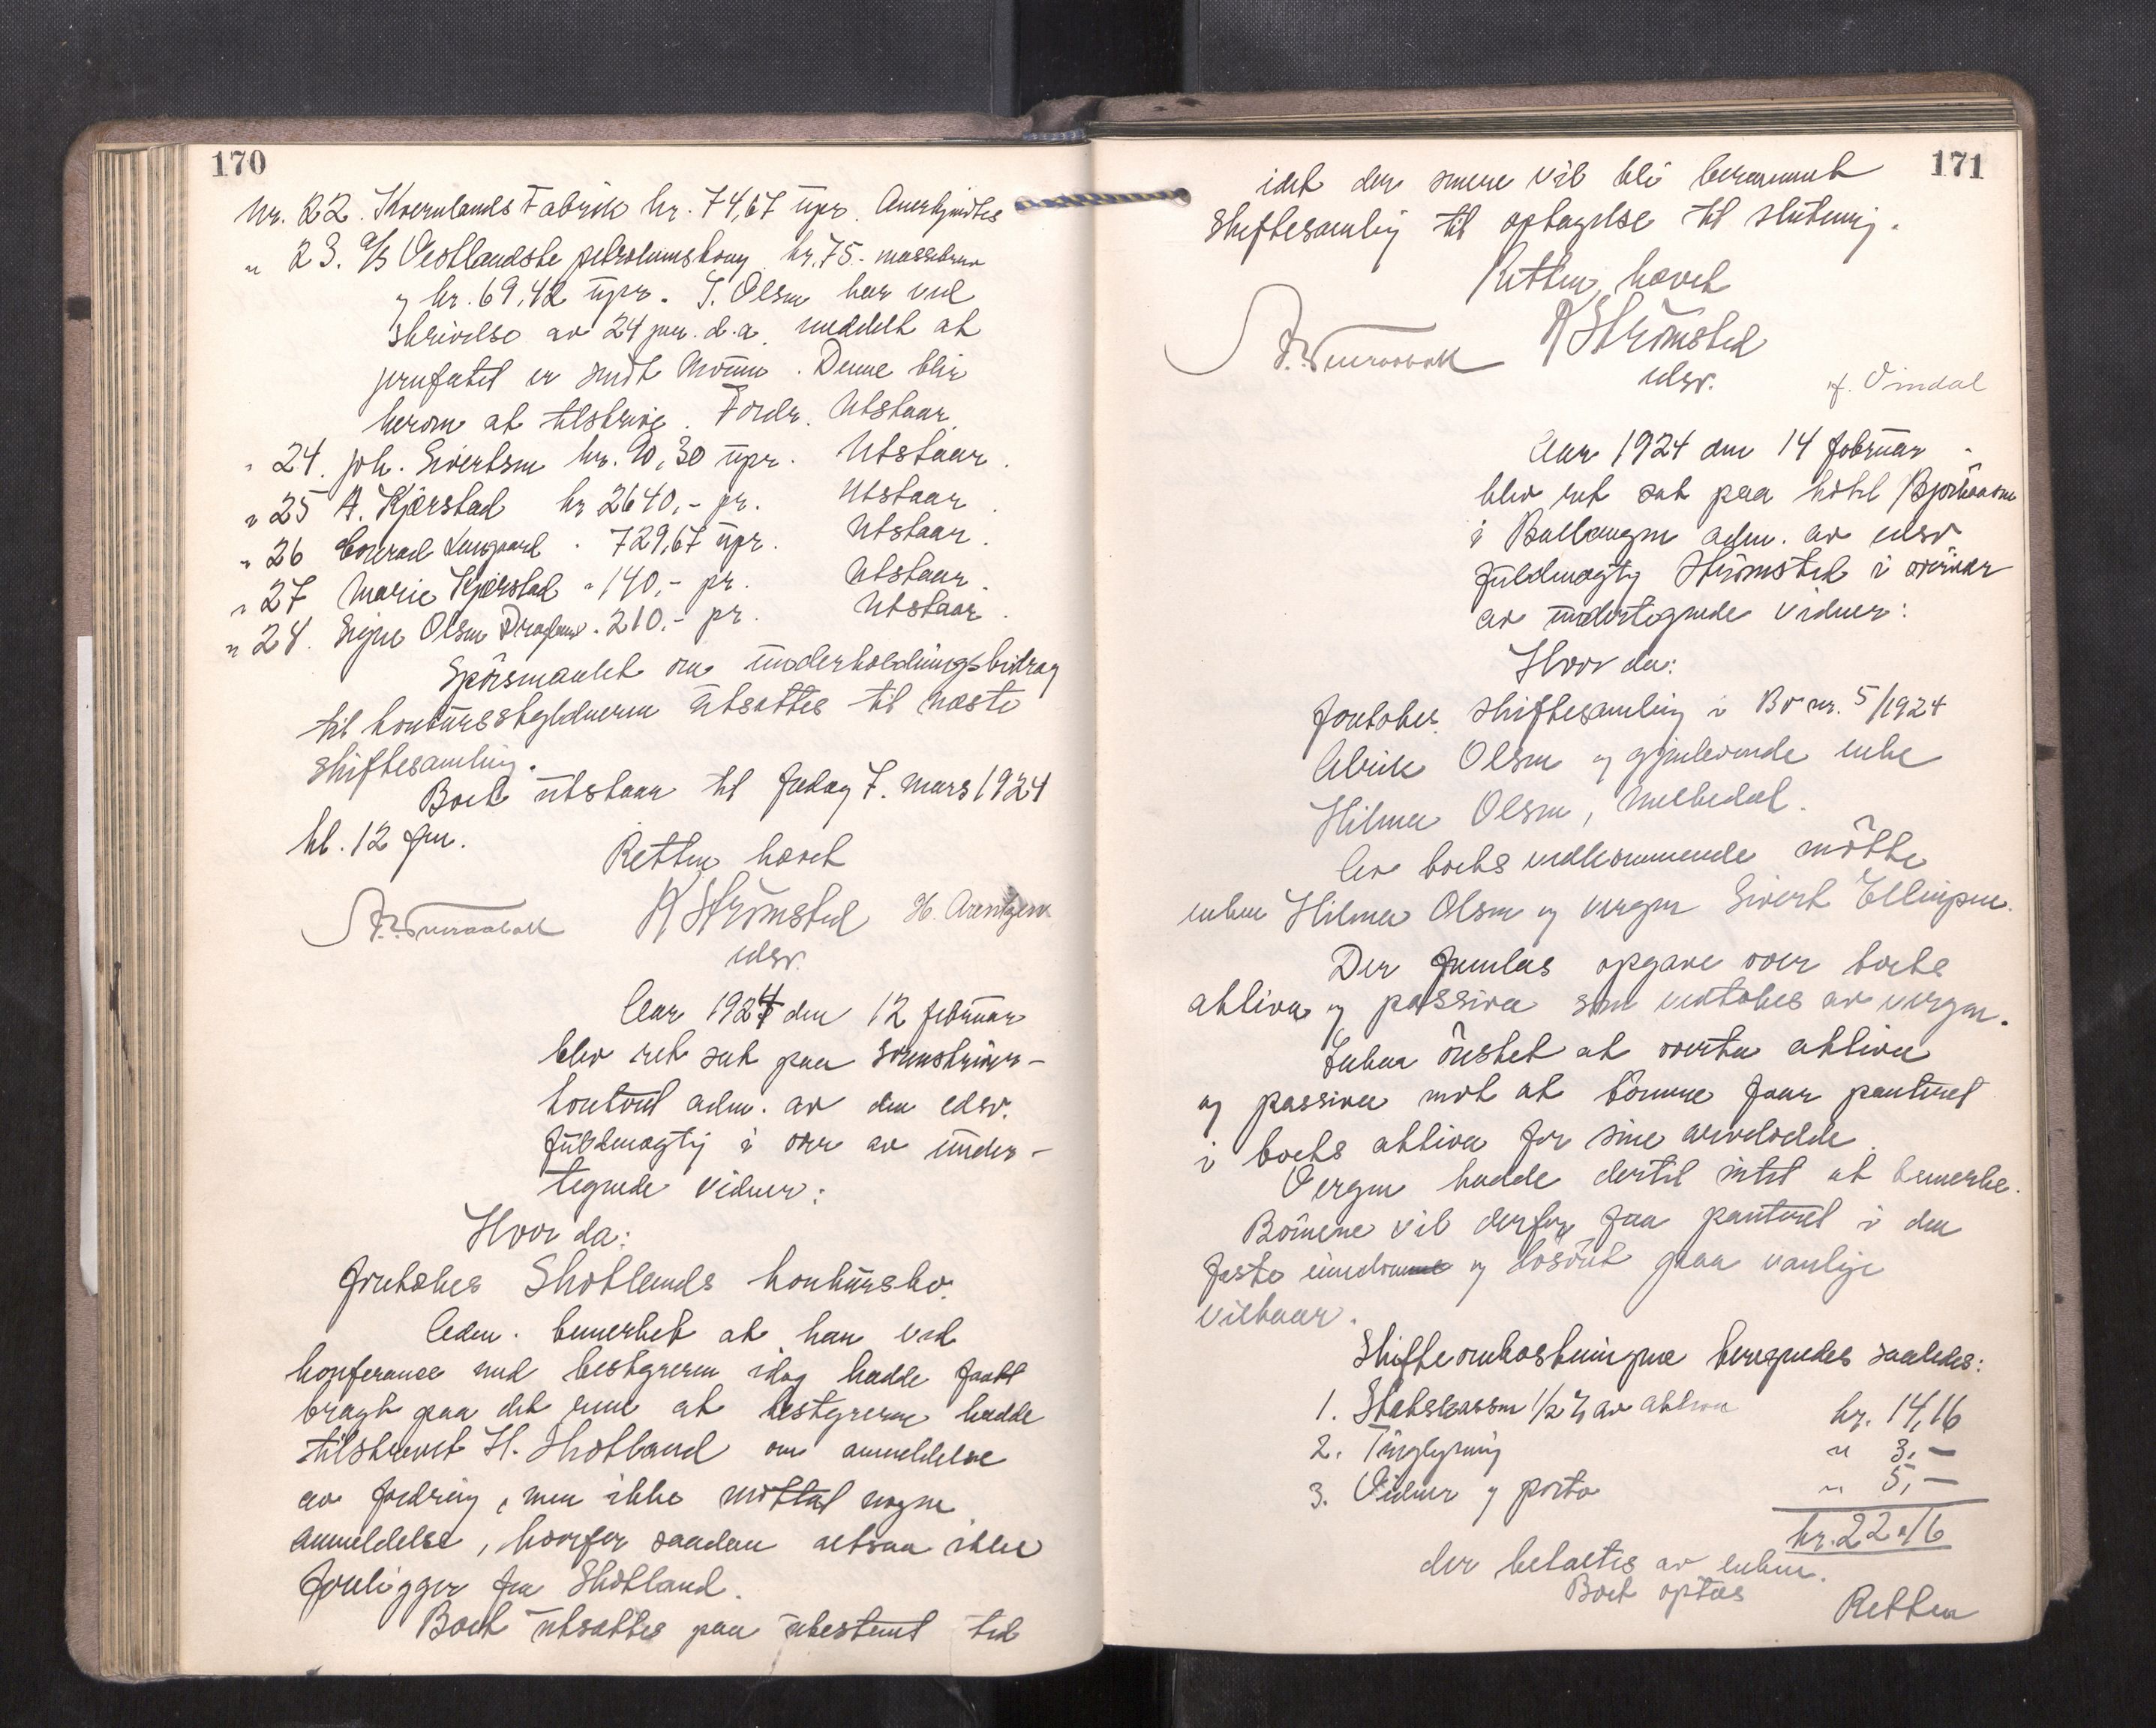 170
Nr. 22. Kvernlands Fabrik kr. 74,67 upr. Anerkjendtes
" 23. A/S Vestlandske petroleumskomp. kr. 75.- massekrav
og kr. 69,42 upr. S. Olsen har ved
skrivelse av 24 jan. d.a. meddelt at
jernfatet er sendt Moum. Denne blir
herom at tilskrive. Fordr. Utstaar.
" 24. Joh. Sivertsen kr. 90,30 upr. Utstaar.
" 25 A. Kjærstad kr 2640,- pr. Utstaar.
" 26 Conrad Lengaard " 729,67 upr. Utstaar.
" 27 Marie Kjærstad " 140,- pr. Utstaar.
" 28. Signe Olsen " 210.- pr. Utstaar.
Spörsmaalet om underholdningsbidrag
til konkursskyldneren utsattes til næste
skiftesamling.
Boet utstaar til fredag 7. mars 1924
kl. 12 fm.
Retten hævet
K Strömsted H. Arentzen
edsv.
Aar 1924 den 12 februar
blev ret sat paa sorenskriver-
kontoret adm. av den edsv.
fuldmægtig i overv. av under-
tegnede vidner:
Hvor da:
foretokes Skotlands konkursbo.
Adm. bemerket at han ved
konferanse med bestyreren idag hadde faatt
bragt paa det rene at bestyreren hadde
tilskrevet H. Skotland om anmeldelse
av fordring, men ikke mottat nogen
anmeldelse, hvorfor saadan altsaa ikke
foreligger fra Skotland.
Boet utsattes paa ubestemt tid
171
idet der senere vil bli berammet
skiftesamling til optagelse til slutning.
Retten hævet
K Strömsted
edsv.
J. Vindal
Aar 1924 den 14 februar
blev ret sat paa hotel Björkaasen
i Ballangen adm. av edsv
fuldmægtig Strömsted i overvær
av undertegnede vidner:
Hvor da:
foretokes skiftesamling i Bo nr. 5/1924
Ulrik Olsen og gjenlevende enke
Hilma Olsen, Melkedal.
Av boets vedkommende mötte
enken Hilma Olsen og vergen Sivert Ellingsen.
Der fremlas opgave over boets
aktiva og passiva som vedtokes av vergen.
Enken önsket at overta aktiva
og passiva mot at börnene faar panteret
i boets aktiva for sine arvelodde.
Vergen hadde dertil intet at bemerke.
Börnene vil derfor faa panteret i den
faste eiendom og lösöret paa vanlige
vilkaar.
Skifteomkostningene beregnedes saaledes:
1. Statskassen 1/2 % av aktiva kr. 14,16
2. Tinglysning " 3,-
3. Vidner og porto " 5,-
kr. 22,16
der betaltes av enken.
Boet optas
Retten